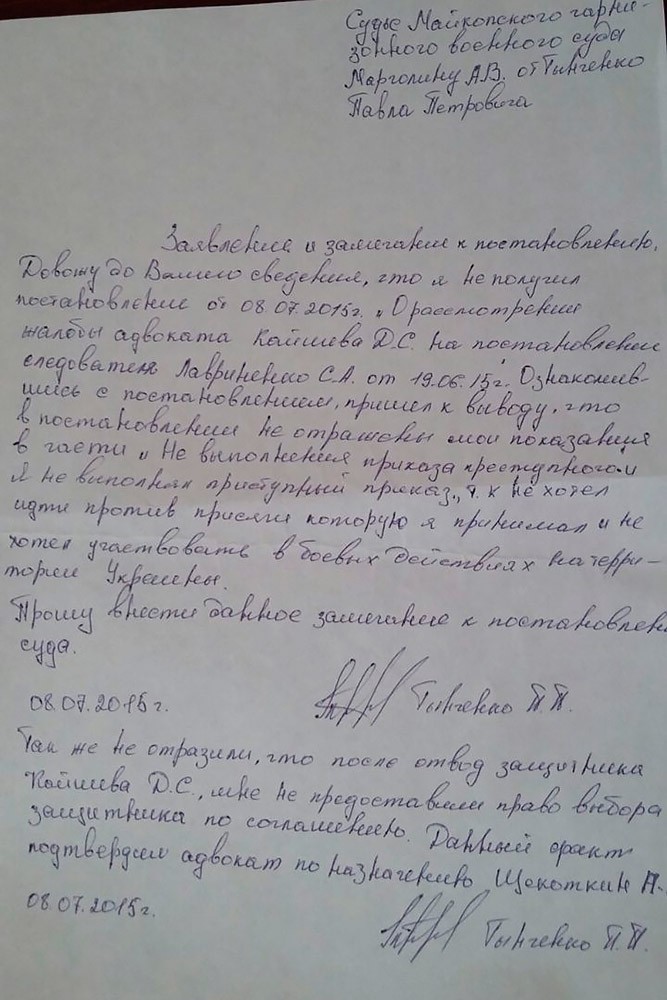 Судье Майкопского гарни-
зонного военного суда
Марголину А.В. от Тынченко
Павла Петровича
Заявление и замечание к постановлению.
Довожу до Вашего сведения, что я не получил
постановление от 08.07.2015г. „О рассмотрении
жалобы адвоката Кайшева Д.С. на постановление
следователя Лавриненко С.А. от 19.06.15г." Ознакомив-
шись с постановлением, пришел к выводу, что
в постановлении не отражены мои показания
в части „Не выполнения приказа преступного" и
Я не выполнял приступный приказ", т.к не хотел
идти против присяги которую я принимал и не
хотел участвовать в боевых действиях на терри-
тории Украины.
Прошу внести данное замечание к постановлени
суда.
08.07.2015г. Тынченко П.П.
Так же не отразили, что после отвод защитника
Кайшева Д.С., мне не предоставили право выбора
защитника по соглашению. Данный факт
подтвердил адвокат по назначению Щекоткин А.
08.07.2015г.
Тынченко П.П.